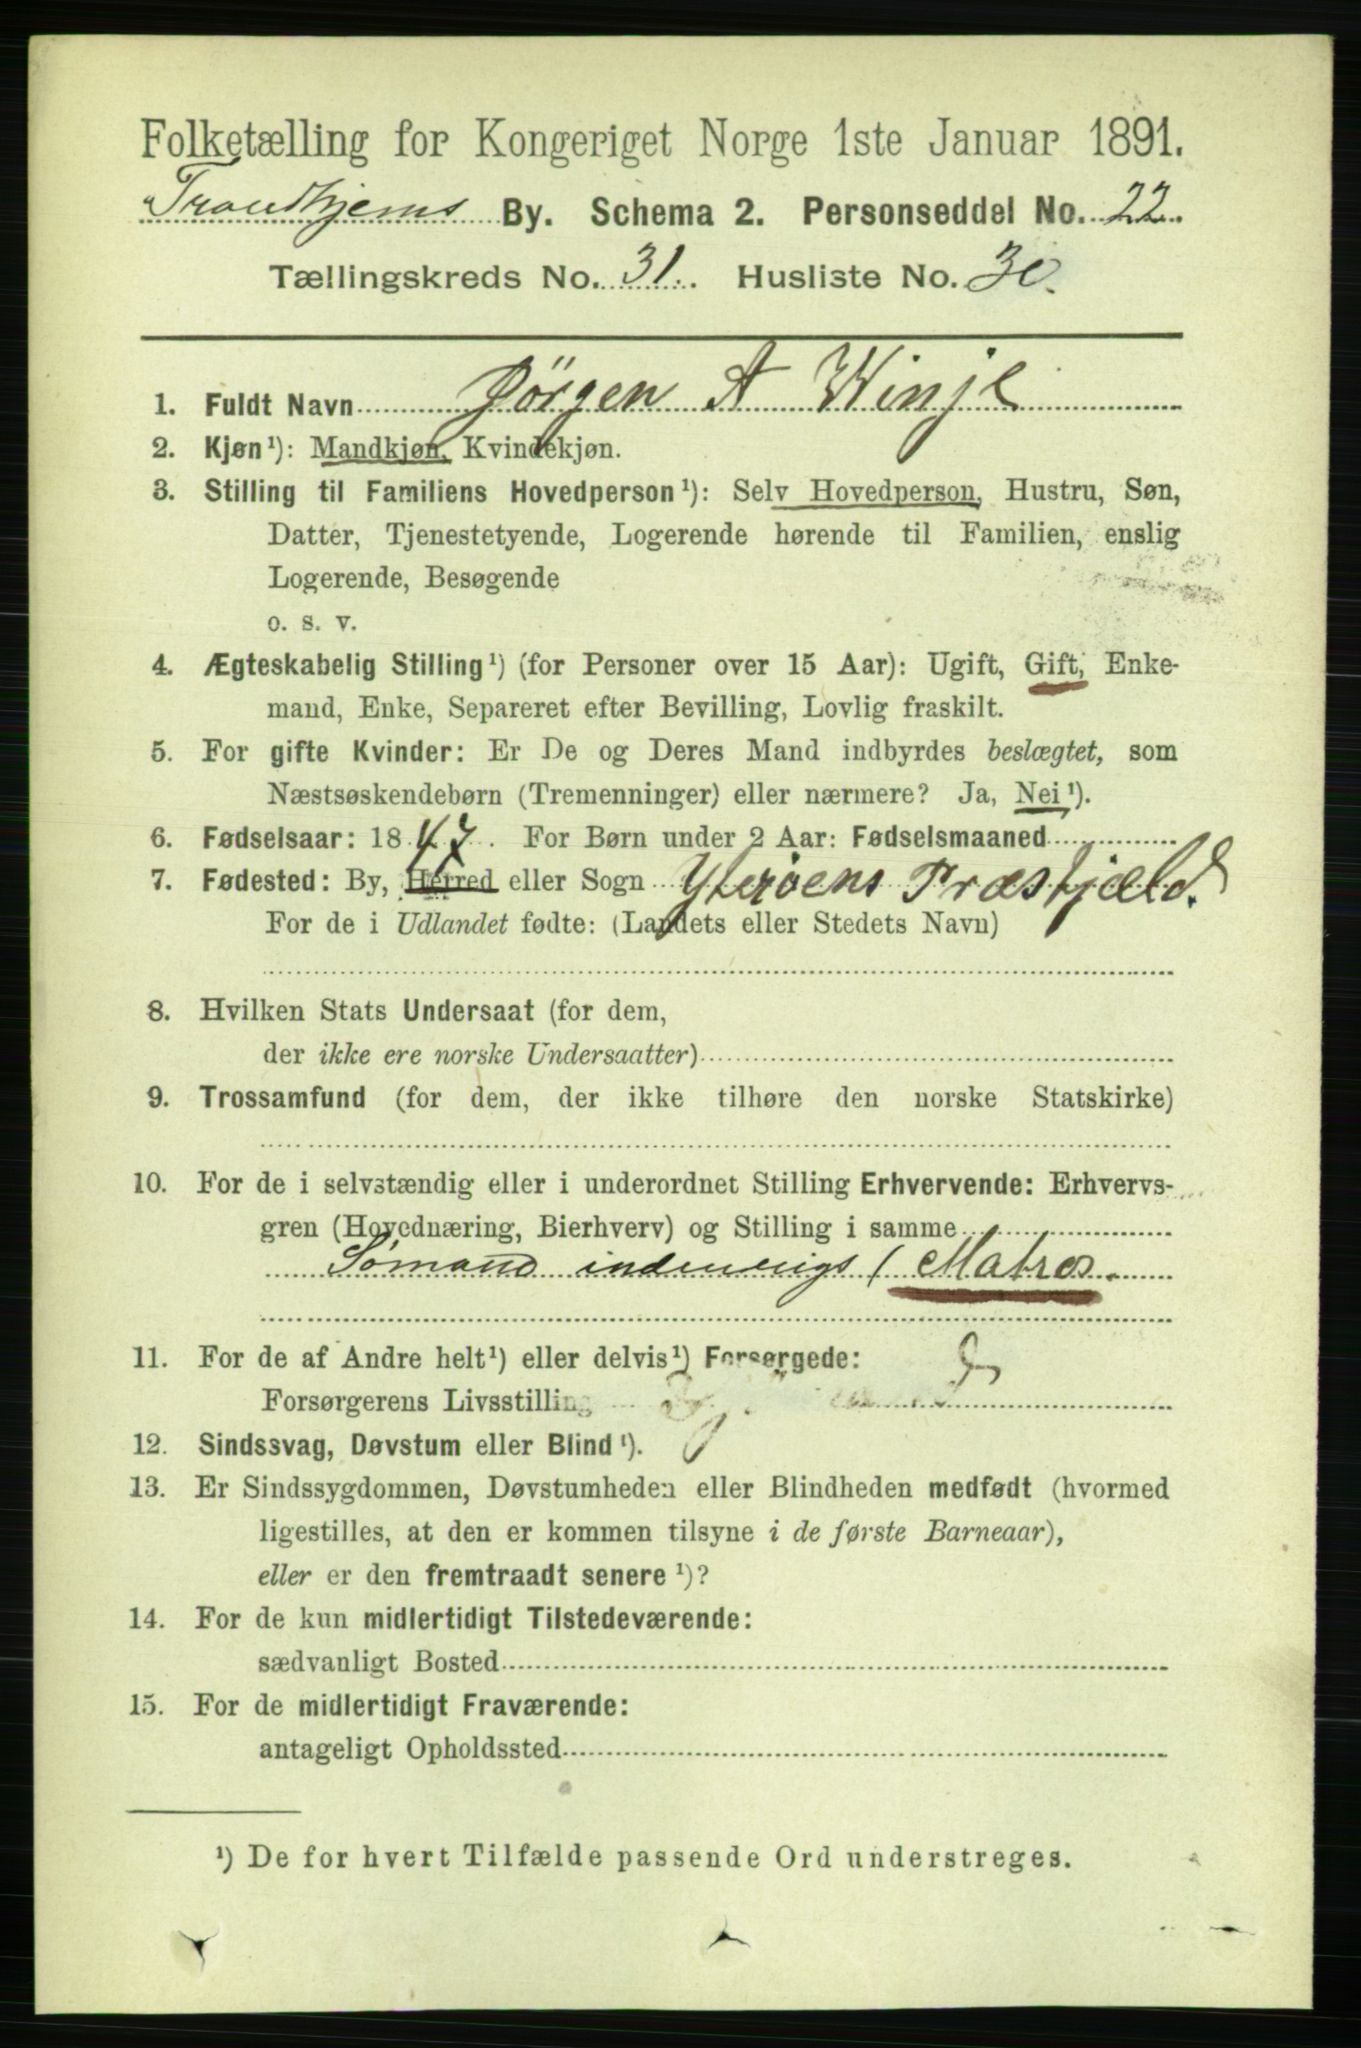 Folketælling for Kongeriget Norge 1ste Januar 1891.
Trondhjems By. Schema 2. Personseddel No. 22.
Tællingskreds No. 31. Husliste No. 30.
1. Fuldt Navn Jörgen A Winje
2. Kjøn¹): Mandkjøn, Kvindekjøn.
3. Stilling til Familiens Hovedperson¹): Selv Hovedperson, Hustru, Søn,
Datter, Tjenestetyende, Logerende hørende til Familien, enslig
Logerende, Besøgende
o. s. v.
4. Ægteskabelig Stilling¹) (for Personer over 15 Aar): Ugift, Gift, Enke-
mand, Enke, Separeret efter Bevilling, Lovlig fraskilt.
5. For gifte Kvinder: Er De og Deres Mand indbyrdes beslægtet, som
Næstsøskendebørn (Tremenninger) eller nærmere? Ja, Nei¹).
6. Fødselsaar: 1847. For Børn under 2 Aar: Fødselsmaaned
7. Fødested: By, Herred eller Sogn Yterøens Præstjæld.
For de i Udlandet fødte: (Landets eller Stedets Navn)
8. Hvilken Stats Undersaat (for dem,
der ikke ere norske Undersaatter)
9. Trossamfund (for dem, der ikke tilhøre den norske Statskirke)
10. For de i selvstændig eller i underordnet Stilling Erhvervende: Erhvervs-
gren (Hovednæring, Bierhverv) og Stilling i samme
Sømand indenrigs / Matros.
11. For de af Andre helt¹) eller delvis¹) Forsørgede:
Forsørgerens Livsstilling
12. Sindssvag, Døvstum eller Blind¹).
13. Er Sindssygdommen, Døvstumheden eller Blindheden medfødt (hvormed
ligestilles, at den er kommen tilsyne i de første Barneaar),
eller er den fremtraadt senere¹)?
14. For de kun midlertidigt Tilstedeværende:
sædvanligt Bosted
15. For de midlertidigt Fraværende:
antageligt Opholdssted
¹) De for hvert Tilfælde passende Ord understreges.